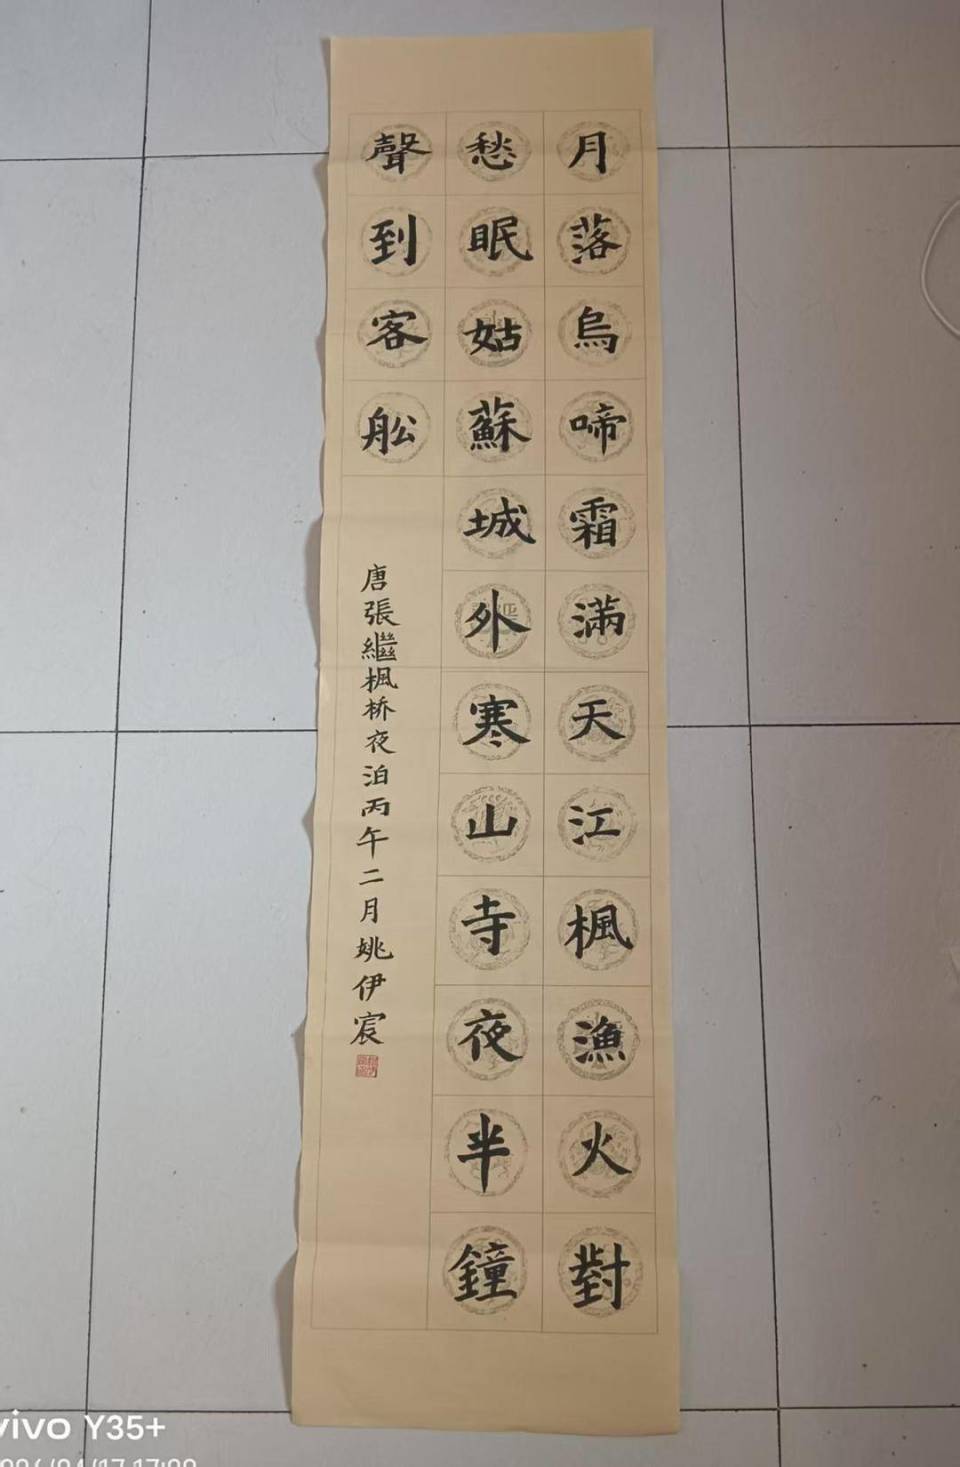 月落烏啼霜滿天江楓漁火對
愁眠姑蘇城外寒山寺夜半鐘
聲到客舩
唐張繼楓桥夜泊丙午二月姚伊宸
vivo Y35+